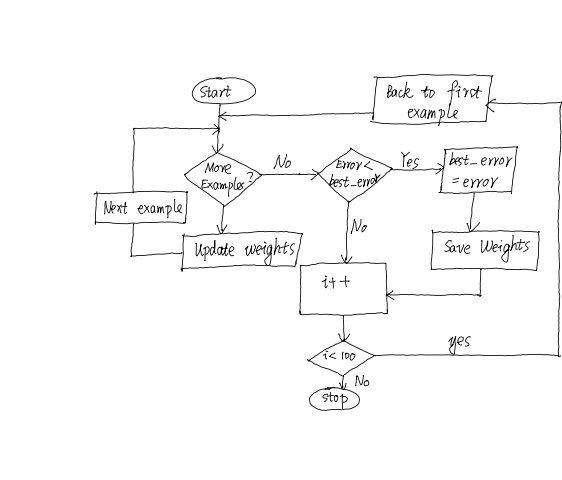 Start
Back to first
example
More
Examples?
No
Error <
best_error
Yes
best_error
= error
Next example
Update weights
No
Save Weights
i++
i < 100
yes
No
stop